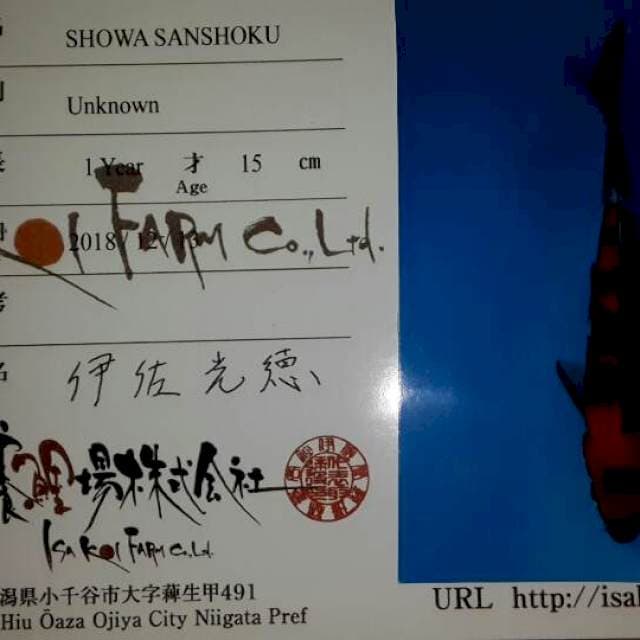 SHOWA SANSHOKU
Unknown
1 Year 才 15 cm
Age
2018 / 12 / 13
KOI FARM Co., Ltd.
伊佐光徳
鯉場株式会社
ISA KOI FARM Co., Ltd.
潟県小千谷市大字薭生甲491
Hiu Ōaza Ojiya City Niigata Pref
URL http://isa